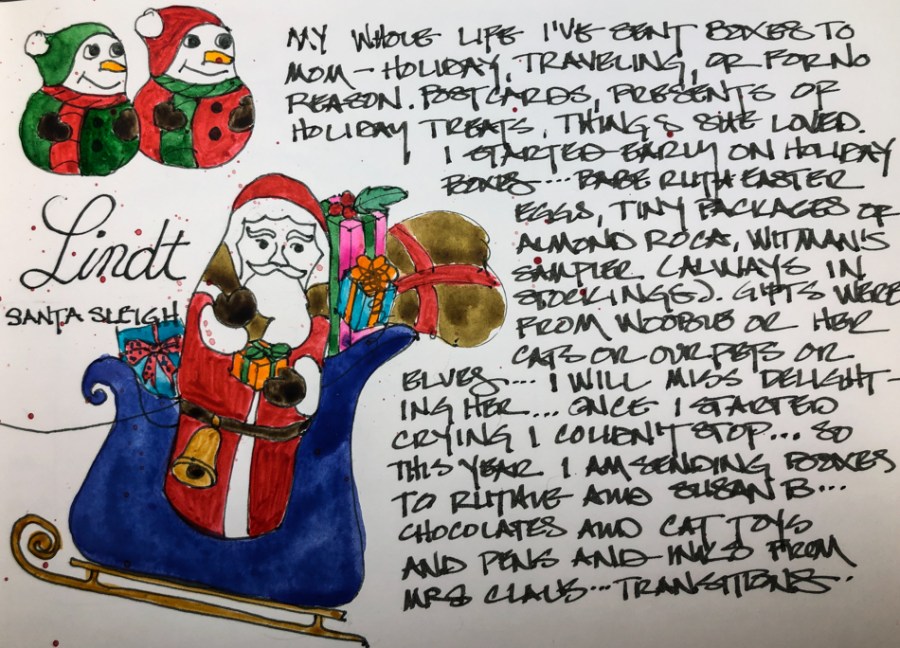 MY WHOLE LIFE I'VE SENT BOXES TO
MOM - HOLIDAY, TRAVELING, OR FOR NO
REASON. POSTCARDS, PRESENTS OR
HOLIDAY TREATS, THINGS SHE LOVED.
I STARTED EARLY ON HOLIDAY
BOXES.... BABE RUTH EASTER
EGGS, TINY PACKAGES OF
ALMOND ROCA, WITMAN'S
SAMPLER. (ALWAYS IN
STOCKINGS). GIFTS WERE
FROM WOOBIE OR HER
CATS OR OUR PETS OR
ELVES.... I WILL MISS DELIGHT-
ING HER... ONCE I STARTED
CRYING I COULDN'T STOP... SO
THIS YEAR I AM SENDING BOXES
TO RUTHIE AND SUSAN B...
CHOCOLATES AND CAT TOYS
AND PENS AND INKS FROM
MRS CLAUS... TRANSITIONS..
Lindt
SANTA SLEIGH